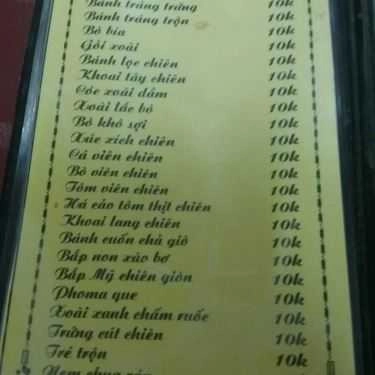 Bánh tráng trứng 10k
Bánh tráng trộn 10k
Bò bía 10k
Gỏi xoài 10k
Bánh lọc chiên 10k
Khoai tây chiên 10k
Cóc xoài dầm 10k
Xoài lắc bò 10k
Bò khô sợi 10k
Xúc xích chiên 10k
Cá viên chiên 10k
Bò viên chiên 10k
Tôm viên chiên 10k
Há cảo tôm thịt chiên 10k
Khoai lang chiên 10k
Bánh cuốn chả giò 10k
Bắp non xào bơ 10k
Bắp Mỹ chiên giòn 10k
Phoma que 10k
Xoài xanh chấm ruốc 10k
Trứng cút chiên 10k
Tré trộn 10k
Nem chua